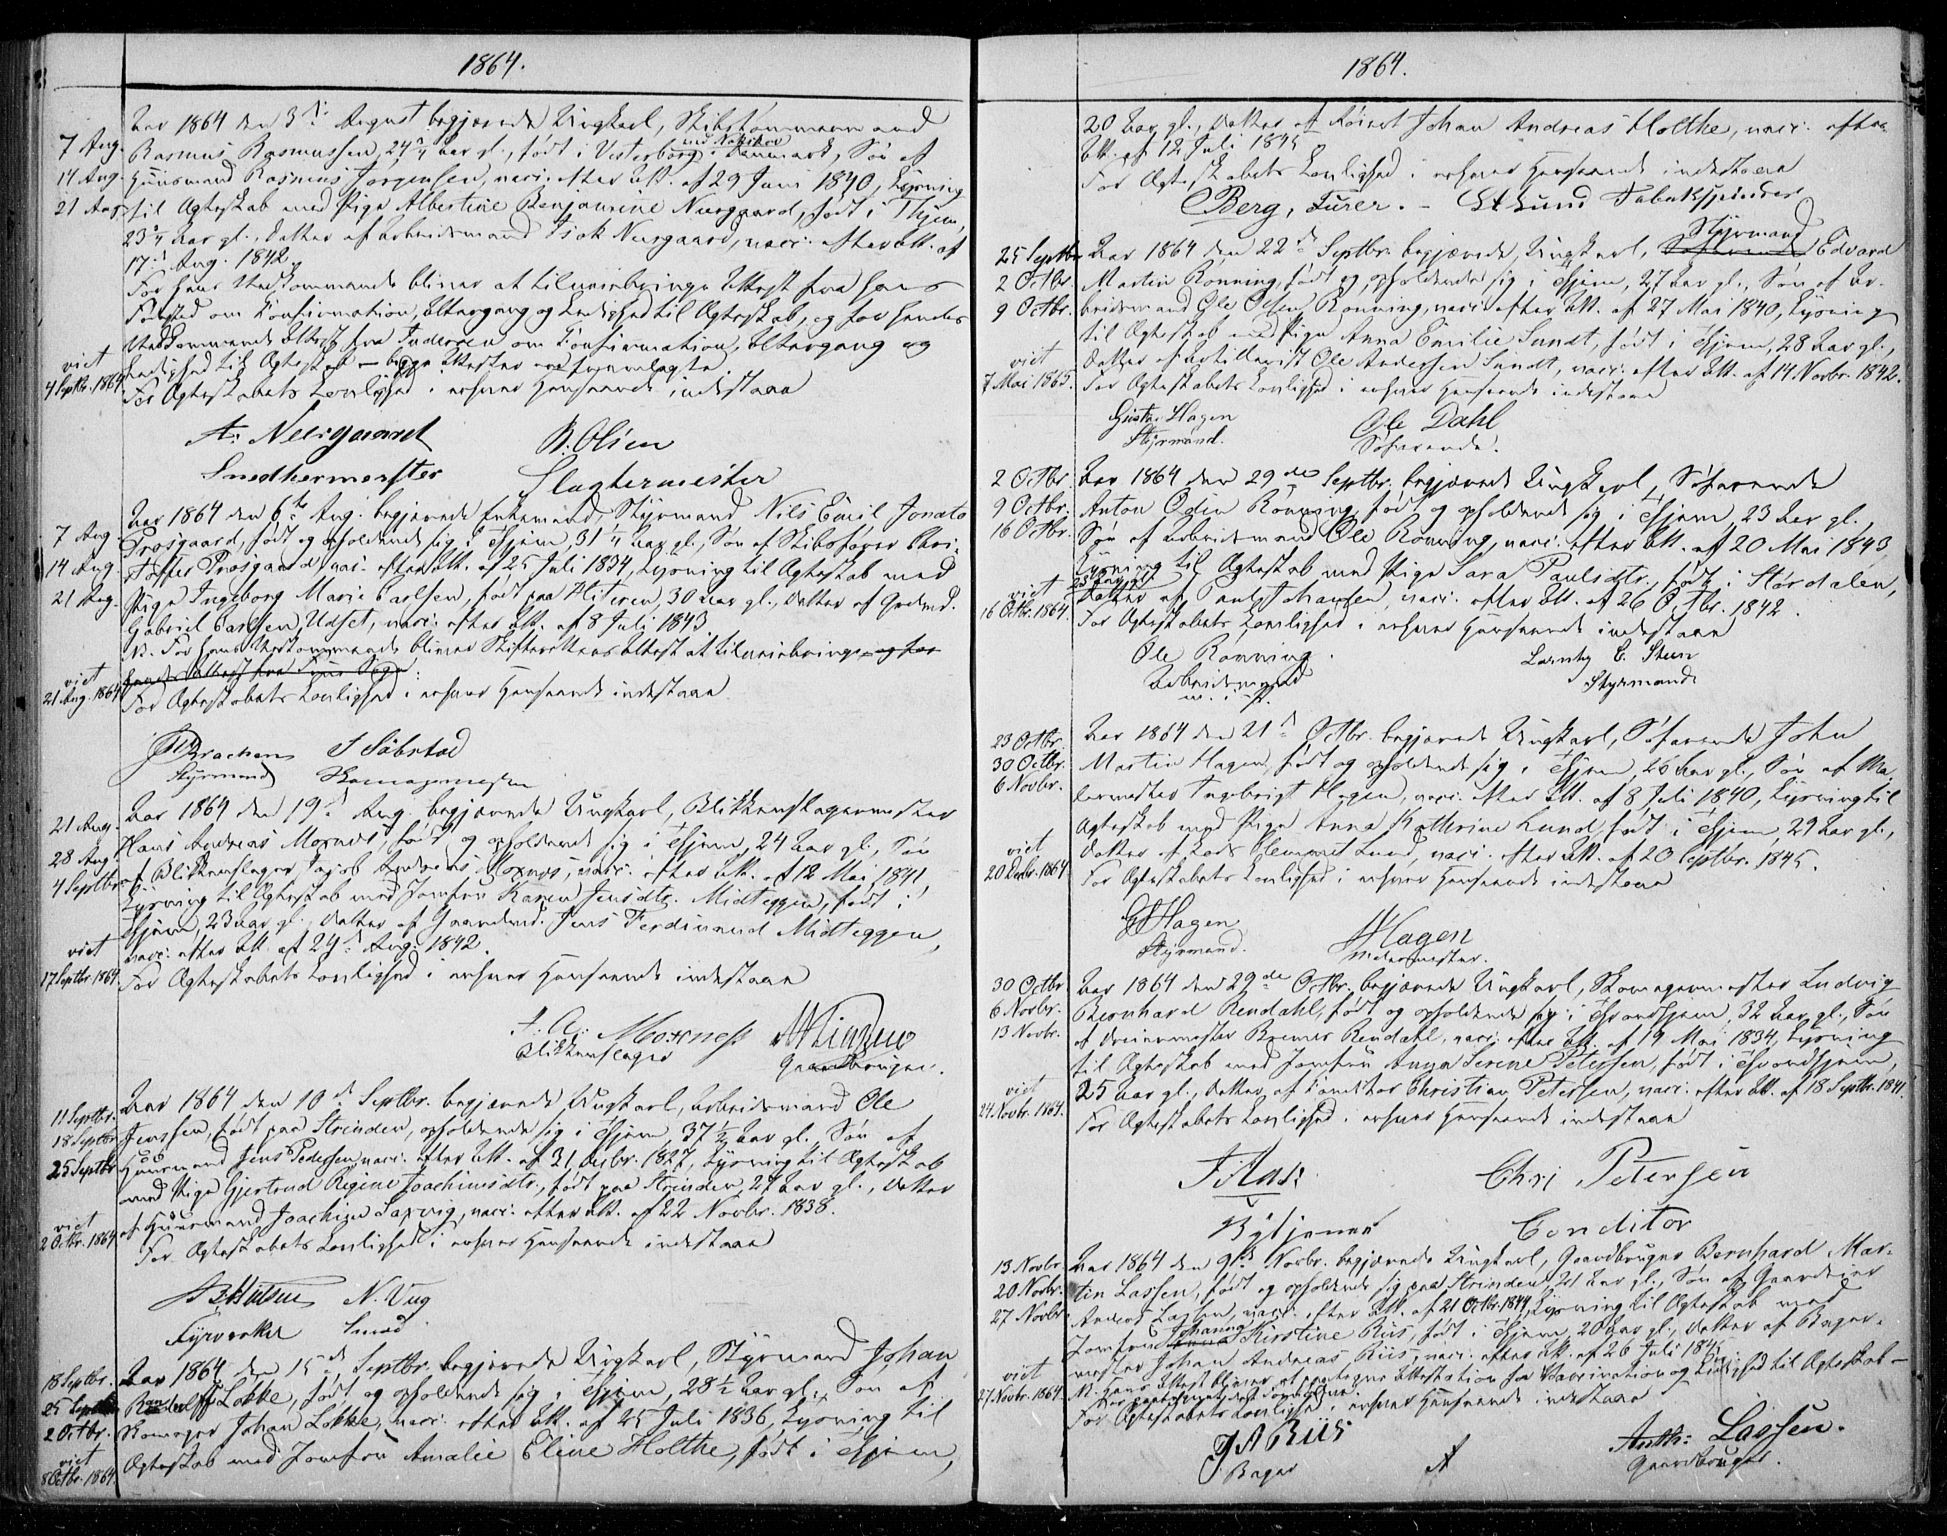 1864.
7 Aug.
14 Aug.
21 Aug.
viet
4 Septbr. 1864.
Aar 1864 den 3die August begjærede Ungkarl, Skibstømmermand
Rasmus Rasmussen, 24 3/4 Aar gl., født i Vesterborg ved Nakskov i Danmark, Søn af
Huusmand Rasmus Jørgensen, vacc. efter Att. af 29 Juni 1840, Lysning
til Ægteskab med Pige Albertine Benjamine Neesgaard, født i Thjem,
23 3/4 Aar gl., Datter af Arbeidsmand Isak Neesgaard, vacc. efter Att. af
17de Aug. 1842.
For hans Vedkommende bliver at tilveiebringe Attest fra hans
Fødested om Confirmation, Altergang og Ledighed til Ægteskab, og for hendes
Vedkommende Attest fra Inderøen om Confirmation, Altergang og
Ledighed til Ægteskab – begge Attester ere fremlagte
For Ægteskabets Lovlighed i enhver Henseende indestaae
A: Neesgaard B. Olsen
Smedhermester Slagtermester
7 Aug.
14 Aug.
21 Aug.
viet
21 Aug. 1864
Aar 1864 den 6te Aug. begjærede Enkemand, Styrmand Nils Emil Jonata
Prøsgaard, født og opholdende sig i Thjem, 31 1/4 Aar gl., Søn af Skibsfører Chri-
stoffer Prøsgaard vacc. efter Att. af 25 Juli 1834, Lysning til Ægteskab med
Pige Ingeborg Marie Carlsen, født paa Hitteren, 30 Aar gl., Datter af Gaardmd.
Gabriel Carlsen Udset, vacc. efter Att. af 8 Juli 1843
N. For hans Vedkommende bliver Skifterettens Attest at tilveiebringe og for
hendes Attest fra Fyns Sogn.
For Ægteskabets Lovlighed i enhver Henseende indestaae
Brachen S Søbstad
Styrmand Skomagermester
21 Aug.
28 Aug.
4 Septbr.
viet
17 Septbr. 1864
Aar 1864 den 19de Aug. begjærede Ungkarl, Blikkenslagermester
Hans Andreas Moxnes, født og opholdende sig i Thjem, 24 Aar gl., Søn
af Blikkenslager Jacob Andreas Moxnes, vacc. efter Att. af 12 Mai 1841,
Lysning til Ægteskab med Jomfru Karen Jensdtr. Midteggen, født i
Thjem, 23 Aar gl., Datter af Gaardmd. Jens Ferdinand Midteggen,
vacc. efter Att. af 24de Aug. 1842.
For Ægteskabets Lovlighed i enhver Henseende indestaae
J: A: Moxness
Blikkenslager Gaardbruger.
11 Septbr.
18 Septbr.
25 Septbr.
viet
2 Octbr. 1864
Aar 1864 den 10de Septbr. begjærede Ungkarl, Arbeidsmand Ole
Jenssen, født paa Strinden, opholdende sig i Thjem, 37 1/2 Aar gl., Søn af
Huusmand Jens Pedersen, vacc. efter Att. af 31 Decbr. 1827, Lysning til Ægteskab
med Pige Gjertrud Regine Joachimsdtr., født paa Strinden, 27 Aar gl., Datter
af Huusmand Joachim Saxvig, vacc. efter Att. af 22 Novbr. 1838.
For Ægteskabets Lovlighed i enhver Henseende indestaae
N. Vug
Fyrværker Smed
18 Septbr.
25 Septbr.
2 Octbr.
viet
8 Octbr. 1864.
Aar 1864 den 15de Septbr. begjærede Ungkarl, Styrmand Johan
Randulff Løkke, født og opholdende sig i Thjem, 28 1/2 Aar gl., Søn af
Skomager Johan Løkke, vacc. efter Att. af 25 Juli 1836, Lysning til
Ægteskab med Jomfru Amalie Eline Holthe, født i Thjem,
1864.
20 Aar gl., Datter af Johan Andreas Holthe, vacc. efter
Att. af 12 Juli 1845
For Ægteskabets Lovlighed i enhver Henseende indestaae
Berg, Furer. – St Lund Tobakspinder
25 Septbr.
2 Octbr.
9 Octbr.
viet
7 Mai 1865.
Aar 1864 den 22de Septbr. begjærede Ungkarl, Styrmand Edvard
Martin Rønning, født og opholdende sig i Thjem, 27 Aar gl., Søn af Ar-
beidsmand Ole Olsen Rønning, vacc. efter Att. af 27 Mai 1840, Lysning
til Ægteskab med Pige Anna Emilie Sundt, født i Thjem, 28 Aar gl.,
Datter af Artillerist Ole Andersen Sundt, vacc. efter Att. af 14 Novbr. 1842.
For Ægteskabets Lovlighed i enhver Henseende indestaae
Gustav Hagen Ole Dahl
Styrmand. Søfarende.
2 Octbr.
9 Octbr.
16 Octbr.
viet
16 Octbr. 1864.
Aar 1864 den 29de Septbr. begjærede Ungkarl, Søfarende
Anton Odin Rønning, født og opholdende sig i Thjem, 23 Aar gl.,
Søn af Arbeidsmand Ole Rønning, vacc. efter Att. af 20 Mai 1843,
Lysning til Ægteskab med Pige Sara Paulsdtr., født i Størdalen,
23 Aar gl., Datter af Paul Johansen, vacc. efter Att. af 26 Octbr. 1842.
For Ægteskabets Lovlighed i enhver Henseende indestaae
Ole Rønning. Lornty C. Steen
Arbeidsmand Styrmand
m. i. P.
23 Octbr.
30 Octbr.
6 Novbr.
viet
20 Decbr. 1864
Aar 1864 den 21de Octbr. begjærede Ungkarl, Søfarende John
Martin Hagen, født og opholdende sig i Thjem, 26 Aar gl., Søn af Ma-
lermester Ingebrigt Hagen, vacc. efter Att. af 8 Juli 1840, Lysning til
Ægteskab med Pige Anna Kathrine Lund, født i Thjem, 29 Aar gl.,
Datter af Lods Klemmet Lund, vacc. efter Att. af 20 Septbr. 1845.
For Ægteskabets Lovlighed i enhver Henseende indestaae
G Hagen Hagen
Styrmand. Malermester.
30 Octbr.
6 Novbr.
13 Novbr.
viet
24 Novbr. 1864.
Aar 1864 den 29de Octbr. begjærede Ungkarl, Skomagermester Ludvig
Bernhard Rendahl, født og opholdende sig i Throndhjem, 32 Aar gl., Søn
af Dreiermester Bremer Rendahl, vacc. efter Att. af 19 Mai 1834, Lysning
til Ægteskab med Jomfru Anna Serine Petersen, født i Throndhjem,
25 Aar gl., Datter af Conditor Christian Petersen, vacc. efter Att. af 18 Septbr. 1841.
For Ægteskabets Lovlighed i enhver Henseende indestaae
J Aas: Chri Petersen
Bytjener Conditor
13 Novbr.
20 Novbr.
27 Novbr.
viet
27 Novbr. 1864
Aar 1864 den 9de Novbr. begjærede Ungkarl, Gaardbruger Bernhard Mar-
tin Lassen, født og opholdende sig paa Strinden, 21 Aar gl., Søn af Gaardeier
Anders Lassen, vacc. efter Att. af 21 Octbr. 1844, Lysning til Ægteskab med
Jomfru Johanna Kirstine Riis, født i Thjem, 20 Aar gl., Datter af Bager-
mester Johan Andreas Riis, vacc. efter Att. af 26 Juli 1845
For Ægteskabets Lovlighed i enhver Henseende indestaae
J A Riis Anth: Lassen.
Bager Gaardbruger.